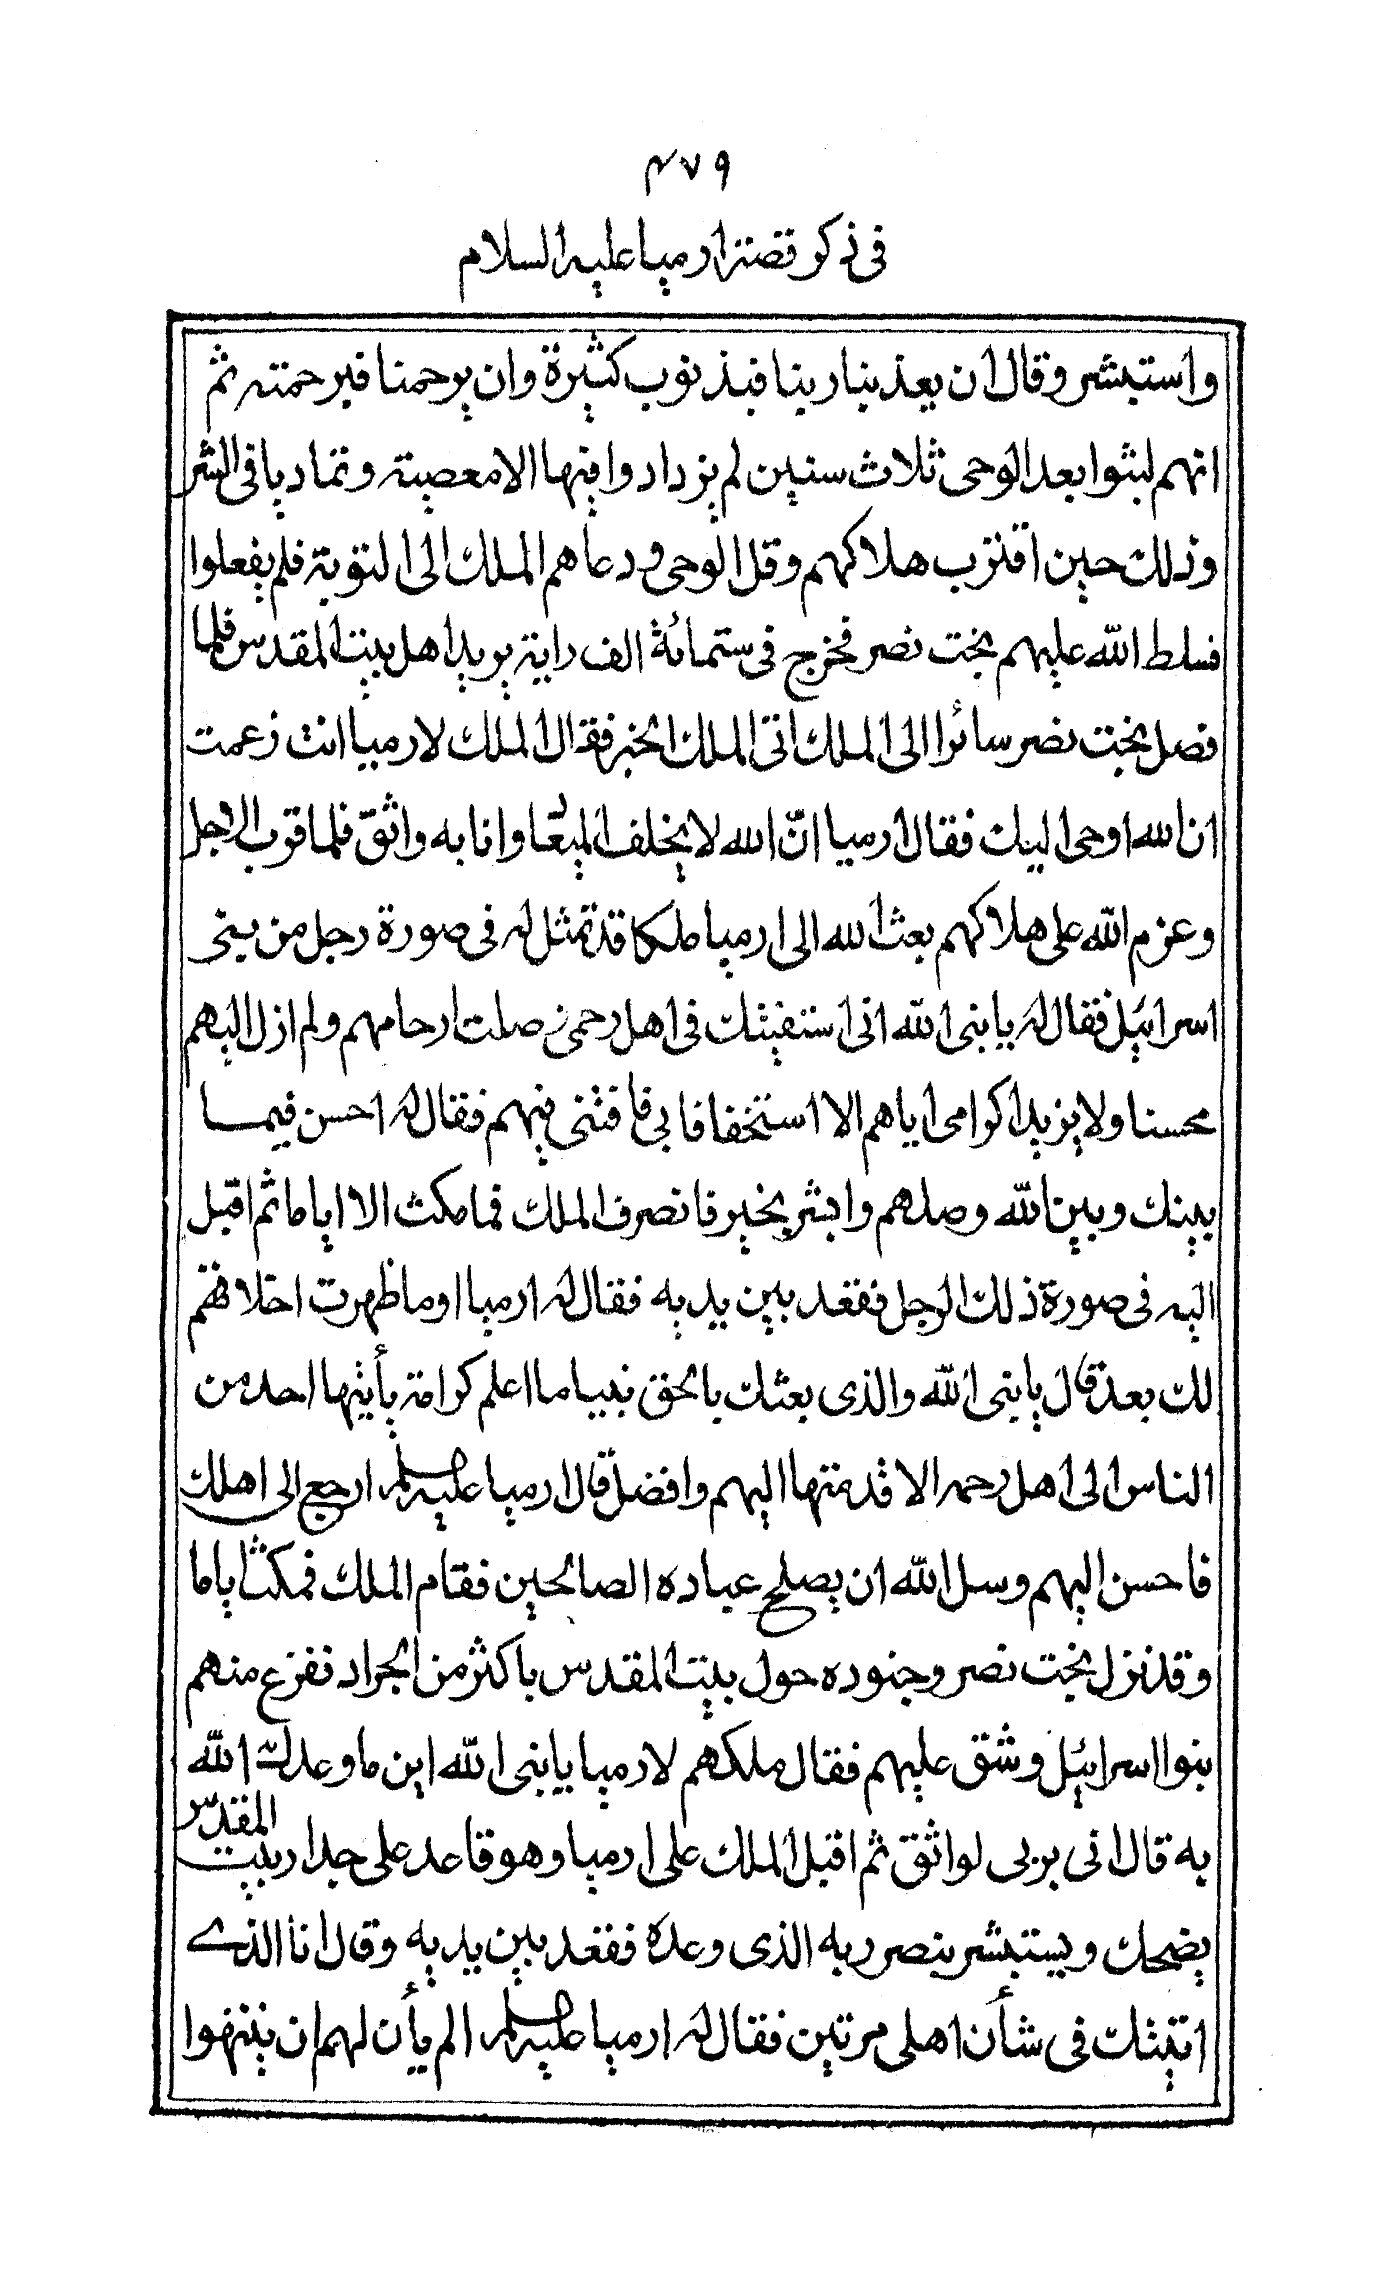 ٤٧٩
في ذكر قصة ارميا عليه السلام
واستبشر وقال ان يعذبنا ربنا فبذنوب كثيرة وان يرحمنا فبرحمته ثم
انهم لبثوا بعد الوحى ثلاث سنين لم يزدادوا فيها الا معصية وتماديا فى الشر
وذلك حين اقترب هلاكهم وقل الوحى ودعاهم الملك الى التوبة فلم يفعلوا
فسلط الله عليهم بخت نصر فخرج فى ستمائة الف راية يريد اهل بيت المقدس فلما
فصل بخت نصر سائرا الى الملك اتى الملك الخبر فقال الملك لارميا انت زعمت
ان الله اوحى اليك فقال ارميا انّ الله لا يخلف الميعاد وانا به واثق فلما قرب الاجل
وعزم الله على هلاكهم بعث الله الى ارميا ملكا قد تمثل له فى صورة رجل من بنى
اسرائيل فقال له يا نبى الله انى استفتيتك فى اهل رحمى وصلت ارحامهم ولم ازل اليهم
محسنا ولا يزيد اكرامى اياهم الا استخفافا بى فافتنى فيهم فقال له احسن فيما
بينك وبين الله وصلهم وابشر بخير فانصرف الملك فما مكث الا اياما ثم اقبل
اليه فى صورة ذلك الرجل فقعد بين يديه فقال له ارميا اوما ظهرت اخلاقهم
لك بعد قال يا نبى الله والذى بعثك بالحق نبيا ما اعلم كرامة يأتيها احد من
الناس الى اهل رحمه الا قدمتها اليهم وافضل قال ارميا عليه السلم ارجع الى اهلك
فاحسن اليهم وسل الله ان يصلح عباده الصالحين فقام الملك فمكث اياما
وقد نزل بخت نصر وجنوده حول بيت المقدس باكثر من الجراد نفزع منهم
بنوا اسرائيل وشق عليهم فقال ملكهم لارميا يا نبى الله اين ما وعدك الله
به قال انى بربى لواثق ثم اقبل الملك على ارميا وهو قاعد على جدار بيت المقدس
يضحك ويستبشر بنصر ربه الذى وعده فقعد بين يديه وقال انا الذى
اتيتك فى شأن اهلى مرتين فقال له ارميا عليه السلم الم يأن لهم ان ينتهوا